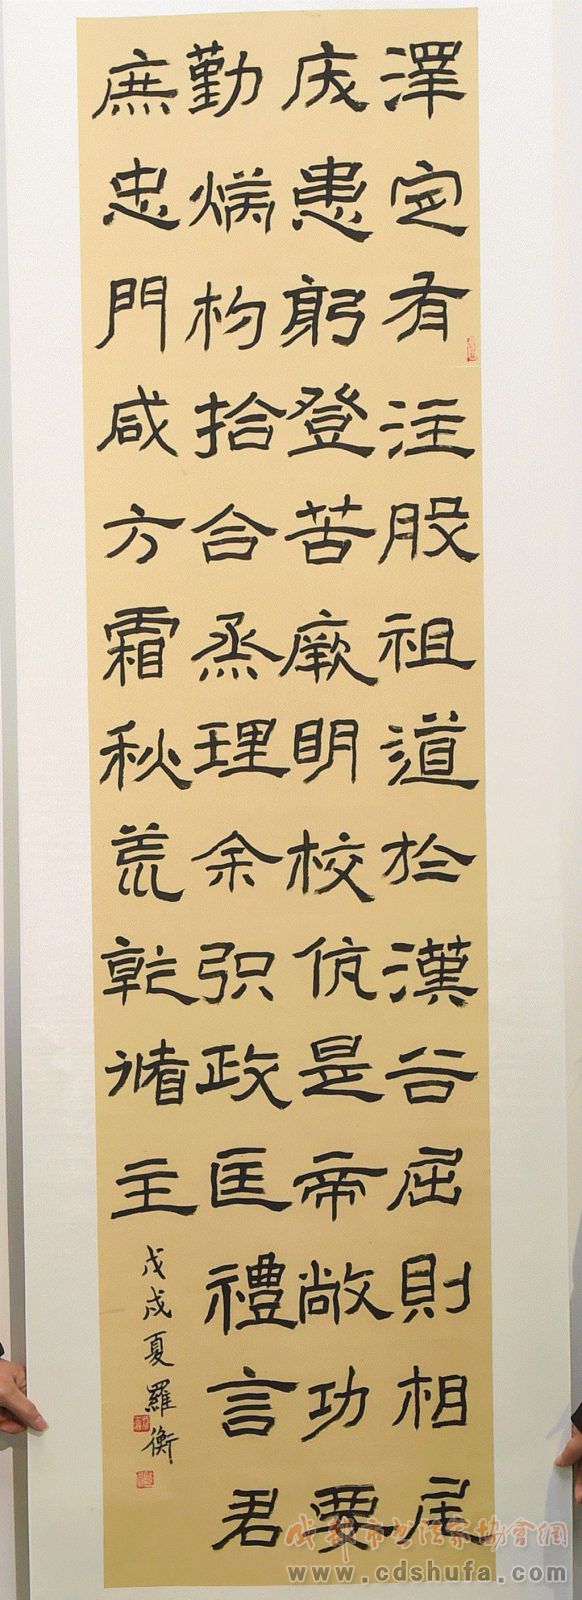 澤定有注股祖道於漢谷屈則相尾
患躬登苦厥明校伉是帝敞功要
勤煥枃拾合烝理余政匡禮言君
庶忠門咸方霜秋荒乾脩主
戊戌夏羅衡
成都市书法家协会网
www.cdshufa.com